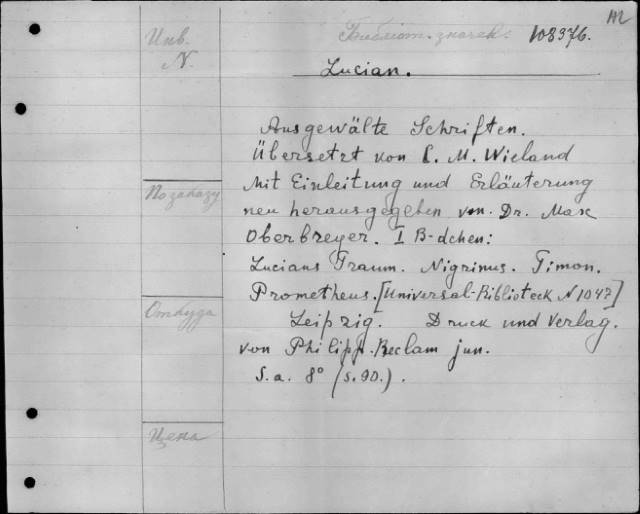 AL
Инв. Библиот. значек: 108376.
N.
Lucian.
Ausgewälte Schriften.
Übersetzt von C. M. Wieland
По заказу
Mit Einleitung und Erläuterung
neu herausgegeben von Dr. Max
Oberbreyer. I B-dchen:
Lucians Traum. Nigrinus. Timon.
Prometheus. [Universal-Biblioteck N 1047]
Откуда
Leipzig. Druck und Verlag.
von Philipp Reclam jun.
S. a. 8° (S. 90.).
Цена